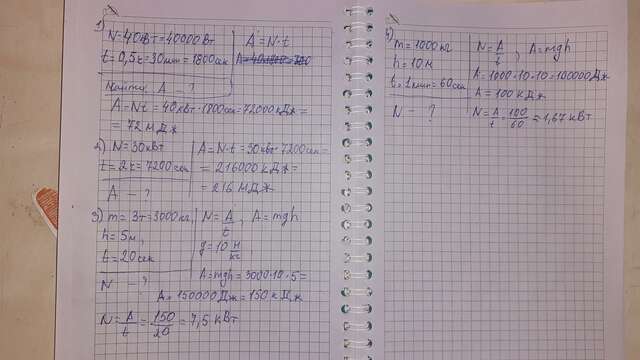 1)
N=40кВт=40000Вт
t=0,5ч=30мин=1800сек
A=N·t
Найти: A - ?
A=Nt=40кВт·1800сек=72000кДж=
=72МДж
2) N=30кВт
t=2ч=7200сек
A - ?
A=N·t=30кВт·7200сек=
=216000кДж=
=216МДж
3) m=3т=3000кг
h=5м,
t=20сек
N - ?
N=A/t, A=mgh
g=10 Н/кг
A=mgh=3000·10·5=
A=150000Дж=150кДж
N=A/t=150/20=7,5кВт
4)
m=1000кг
h=10м
t=1мин=60сек
N - ?
N=A/t, A=mgh
A=1000·10·10=100000Дж
A=100кДж
N=A/t=100/60=1,67кВт